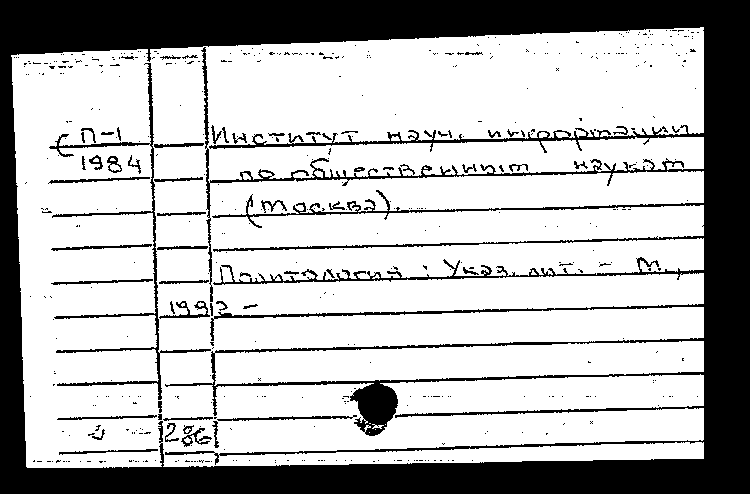 П-1
С 1984
Институт науч. информации
по общественным наукам
(Москва).
Политология : Указ. лит. - М.,
1992 -
286